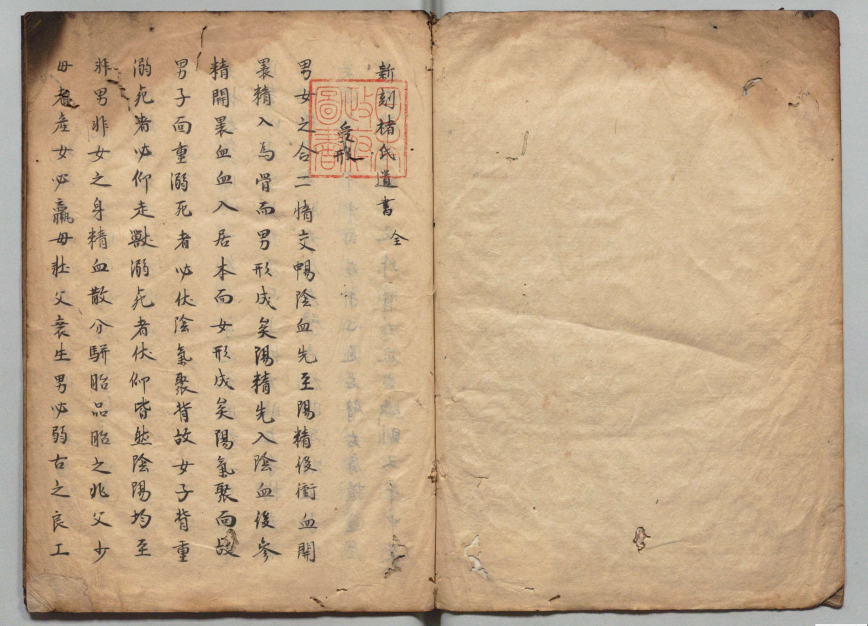 新刻楮氏遺書 全
受形
日本
政府
圖書
男女之合二情交暢陰血先至陽精後衝血開
裹精入為骨而男形成矣陽精先入陰血後參
精開裹血血入居本而女形成矣陽氣聚面故
男子面重溺死者必伏陰氣聚背故女子背重
溺死者必仰走獸溺死者伏仰皆然陰陽均至
非男非女之身精血散分駢胎品胎之兆父少
母老產女必羸母壯父衰生男必弱古之良工